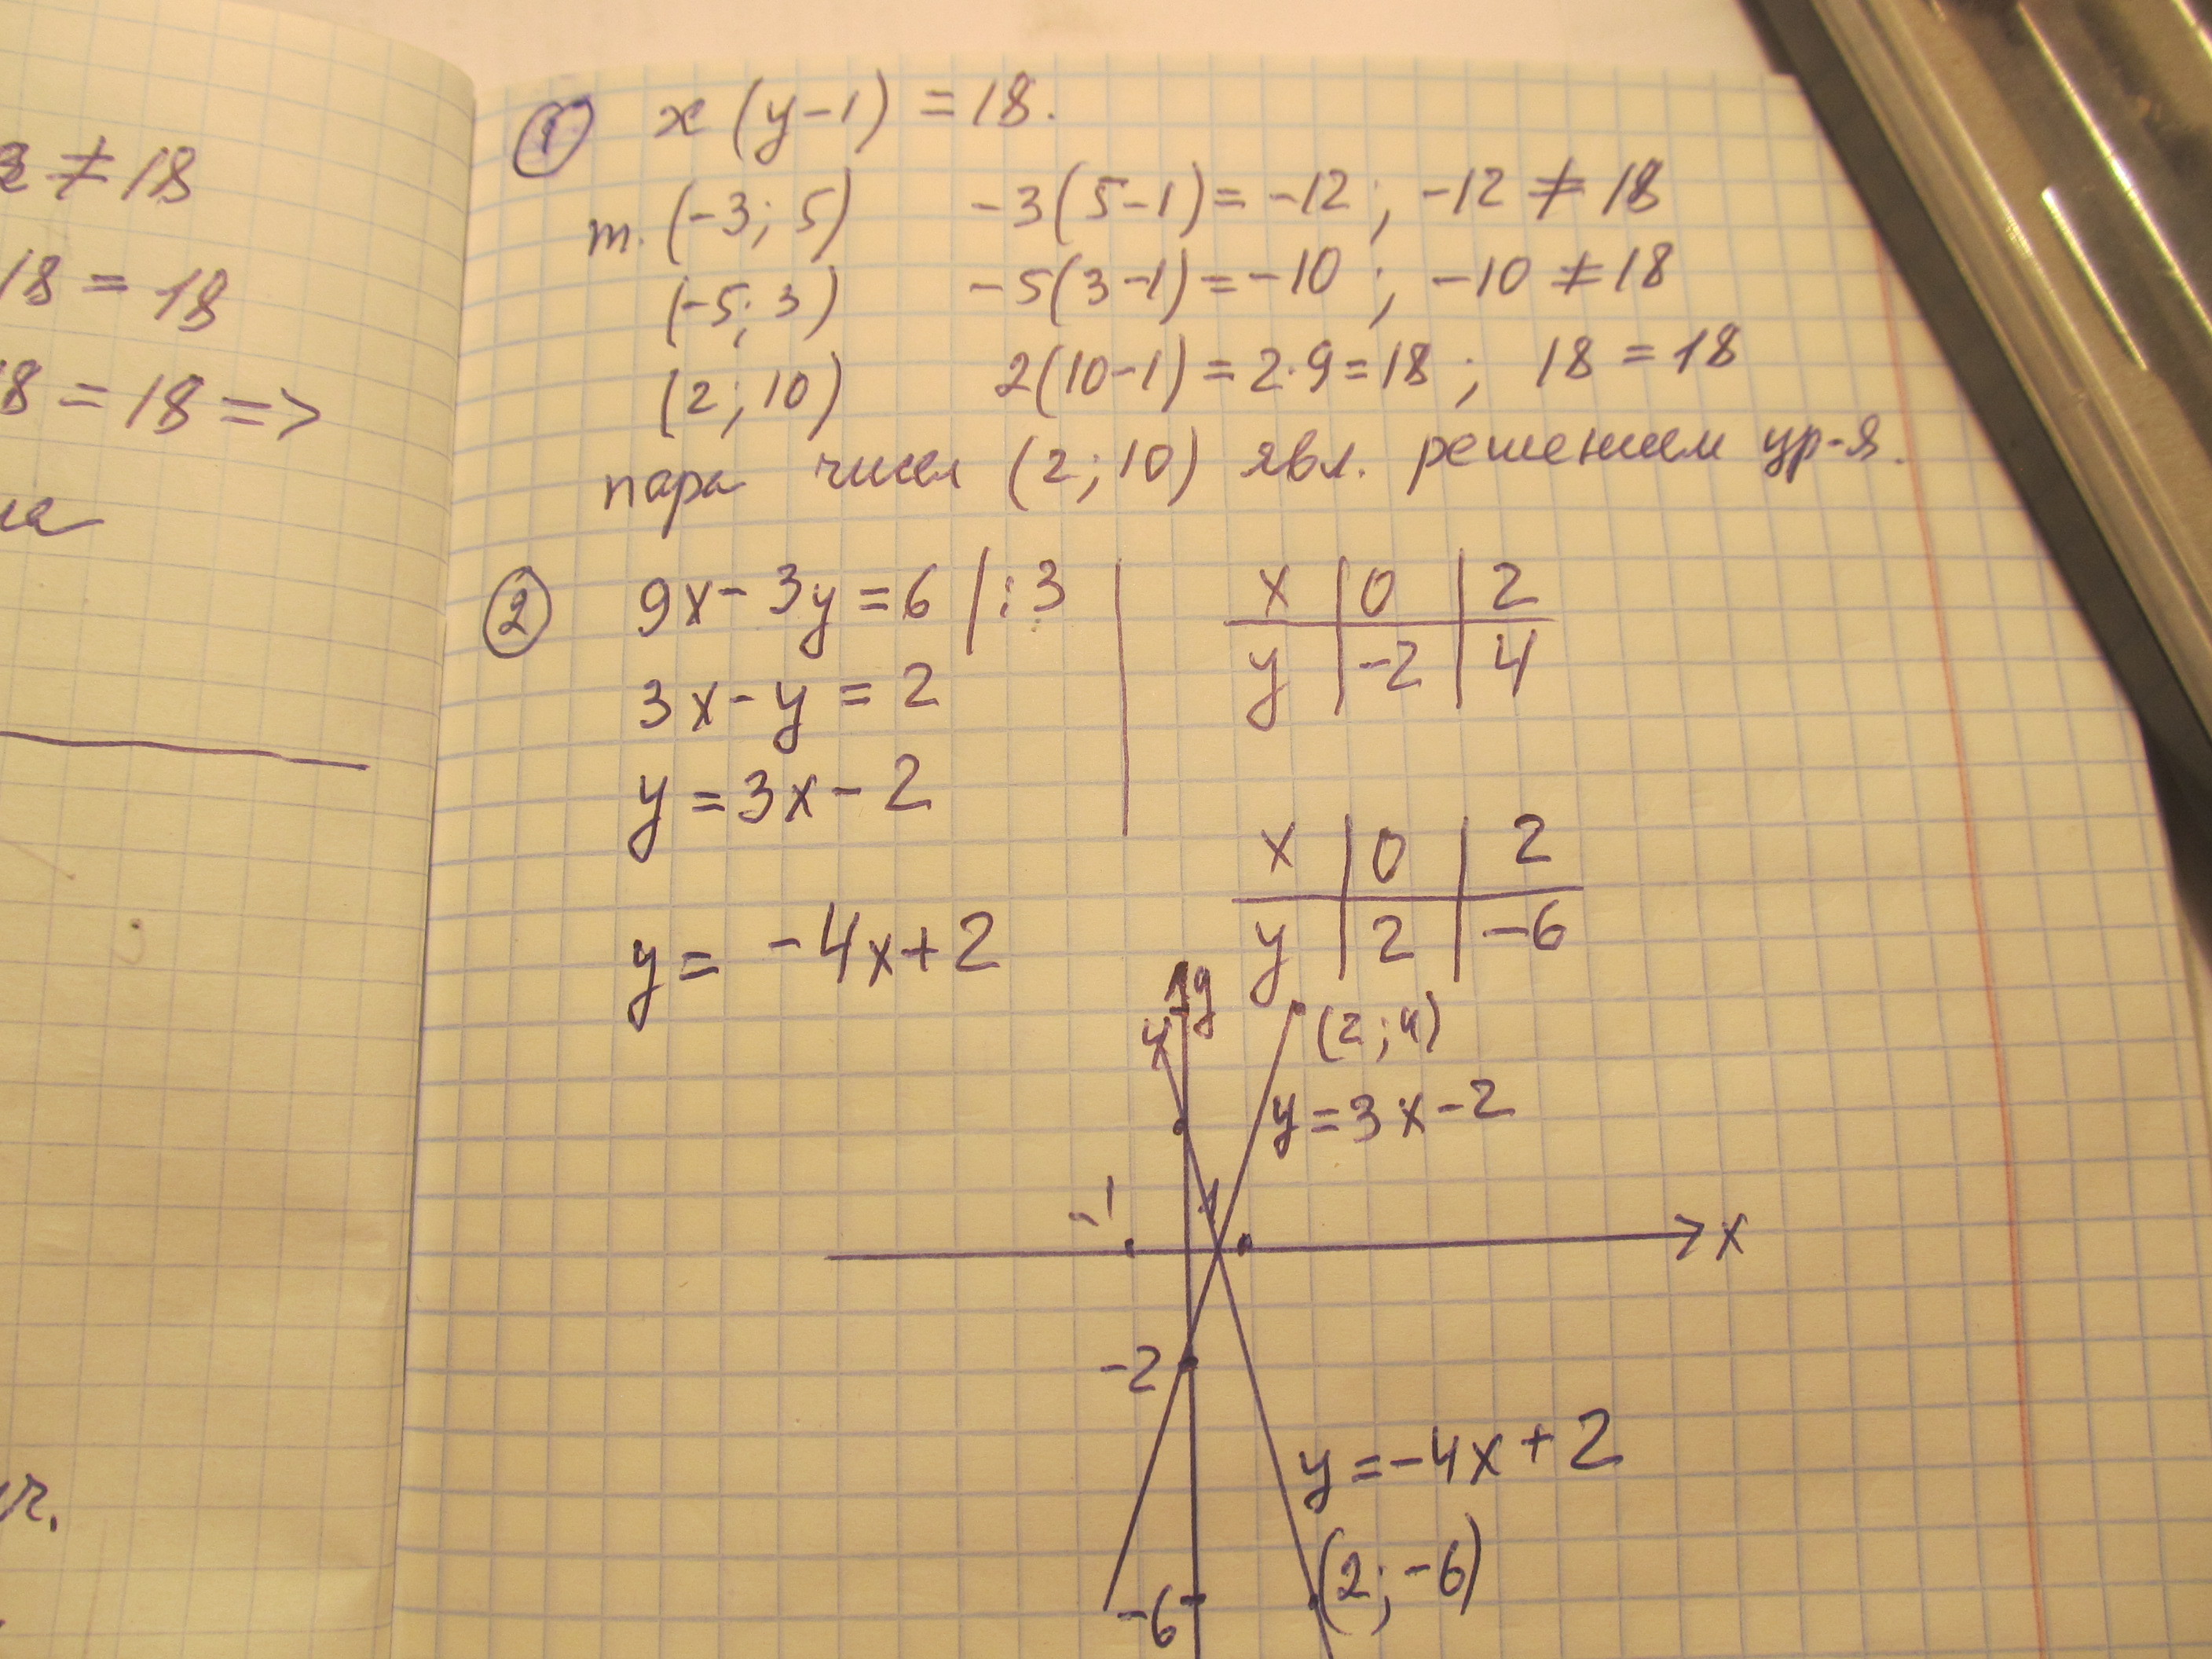 ≠ 18
18 = 18
8 = 18 =>
① x (y-1) = 18.
т. (-3; 5) -3(5-1) = -12; -12 ≠ 18
(-5; 3) -5(3-1) = -10; -10 ≠ 18
(2; 10) 2(10-1) = 2·9 = 18; 18 = 18
пара чисел (2; 10) явл. решением ур-я.
② 9x - 3y = 6 | : 3
3x - y = 2
y = 3x - 2
x | 0 | 2
y | -2 | 4
y = -4x + 2
x | 0 | 2
y | 2 | -6
y
4
(2; 4)
y = 3x - 2
-1
1
x
-2
y = -4x + 2
(2; -6)
-6